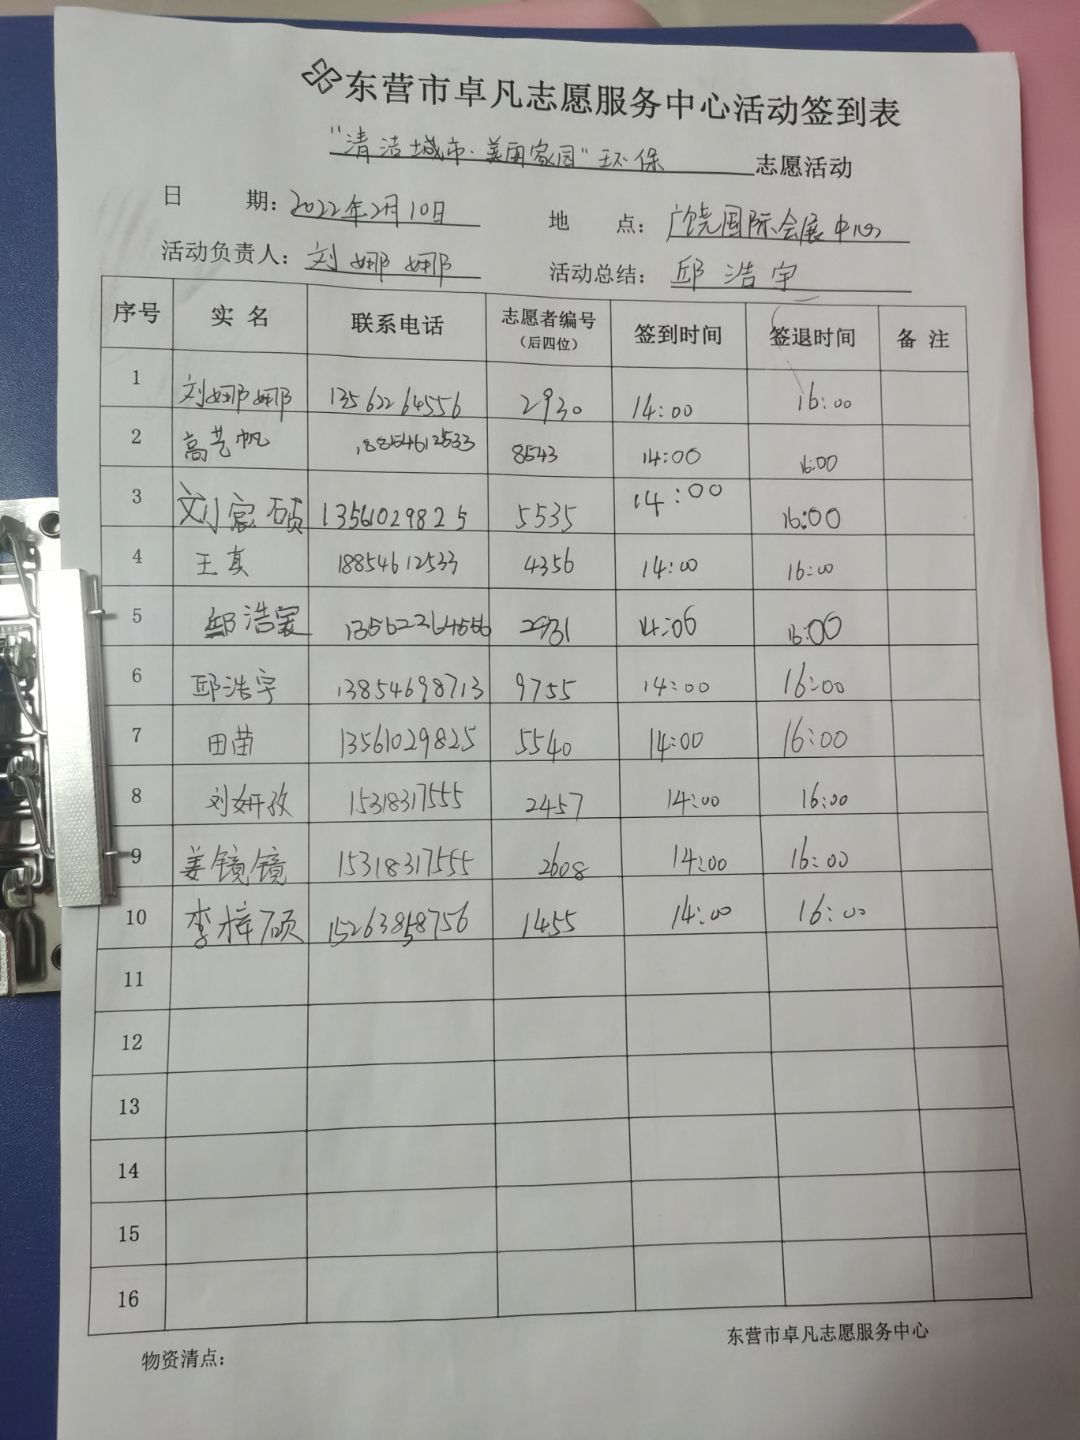 东营市卓凡志愿服务中心活动签到表
“清洁城市·美丽家园”环保 志愿活动
日 期：2022年2月10日 地 点：广饶国际会展中心
活动负责人：刘娜娜 活动总结：邱浩宇
序号 实 名 联系电话 志愿者编号（后四位） 签到时间 签退时间 备 注
1 刘娜娜 13562264556 2930 14:00 16:00
2 高艺帆 18854612533 8543 14:00 16:00
3 刘家硕 13561029825 5535 14:00 16:00
4 王真 18854612533 4356 14:00 16:00
5 邱浩家 13562264556 2931 14:00 16:00
6 邱浩宇 13854698713 9755 14:00 16:00
7 田苗 13561029825 5540 14:00 16:00
8 刘妍孜 15318317555 2457 14:00 16:00
9 姜镜镜 15318317555 2608 14:00 16:00
10 李梓硕 15263858756 1455 14:00 16:00
11
12
13
14
15
16
东营市卓凡志愿服务中心
物资清点：